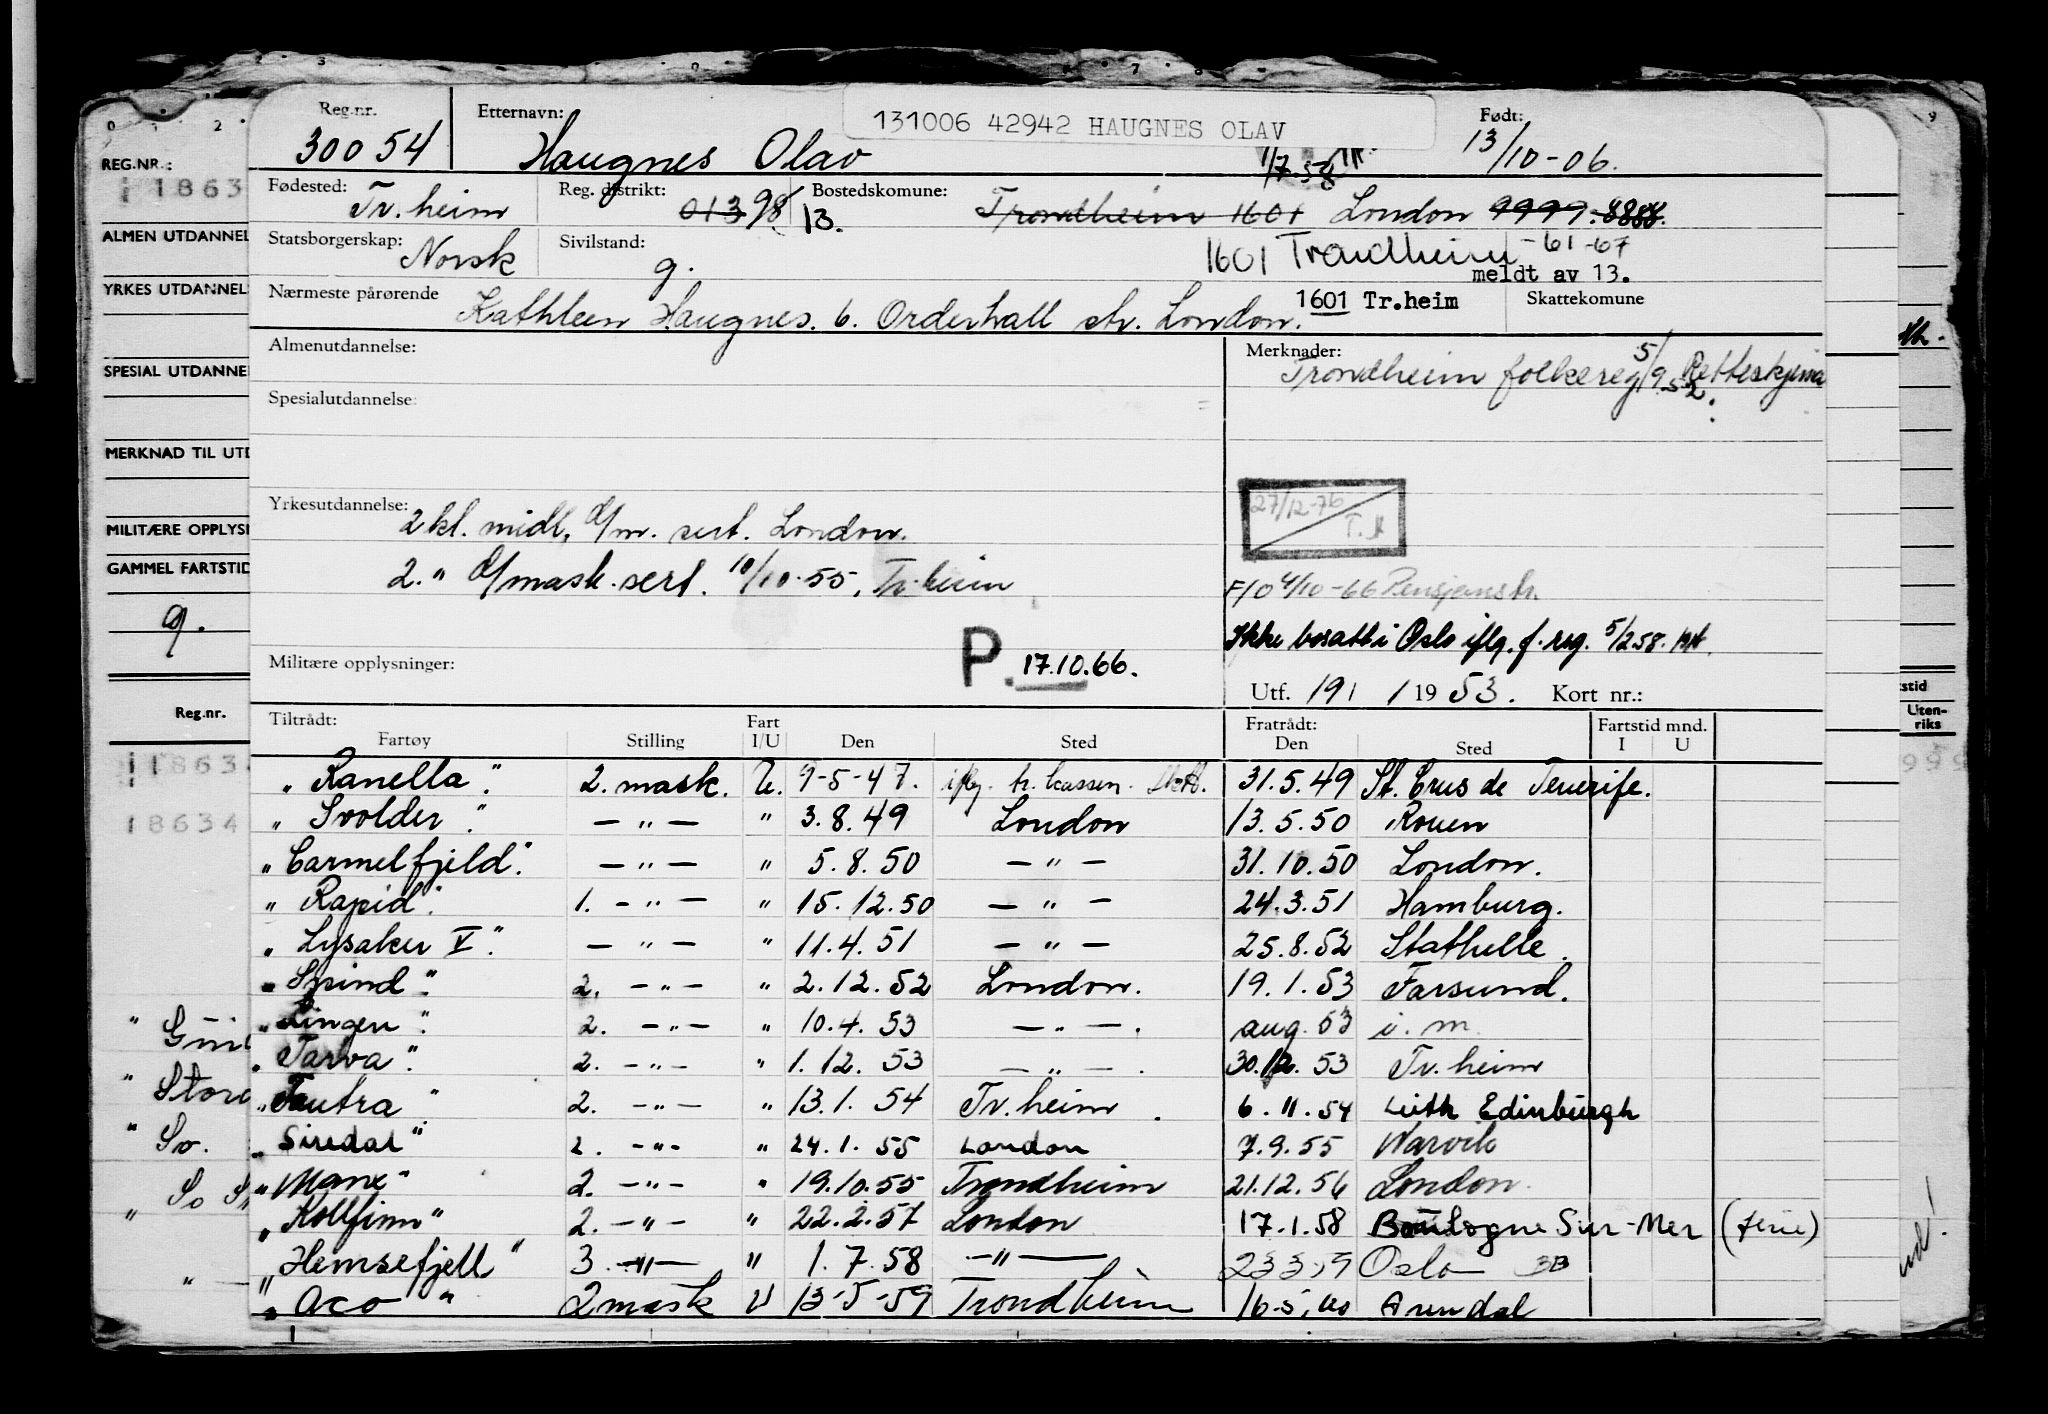 Reg.nr. Etternavn: 131006 42942 HAUGNES OLAV Født:
30054 Haugnes Olav 1/7.58 13/10-06.
Fødested: Tr.heim Reg. distrikt: 013 98 13. Bostedskomune: Trondheim 1601 London 9999. 8888.
Statsborgerskap: Norsk Sivilstand: g. 1601 Trondheim -61-67
meldt av 13.
Nærmeste pårørende Kathleen Haugnes. 6. Orderhall str. London. 1601 Tr.heim Skattekomune
Almenutdannelse: Merknader: Trondheim folkereg 5/9-52 Retteskjema
Spesialutdannelse:
27/12-76
Yrkesutdannelse: 2 kl. midl, d/m. sert. London.
2. " d/mask. sert. 10/10.55, Tr.heim
F10 4/10-66 Pensjonstr.
Ikke bosatt i Oslo iflg. f. reg. 5/2 58.
Militære opplysninger: P. 17.10.66.
Utf. 19/ 1 19 53. Kort nr.:
Tiltrådt: Fart Fratrådt: Fartstid mnd.
Fartøy Stilling I/U Den Sted Den Sted I U
"Ranella". 2. mask. U. 9-5-47. iflg. tr. kassen. 31.5.49 St. Crus de Tenerife.
"Svolder". — " — " 3.8.49 London 13.5.50 Rouen
"Carmelfjeld". — " — " 5.8.50 — " — 31.10.50 London.
"Rapid". 1. — " — " 15.12.50 — " — 24.3.51 Hamburg.
"Lysaker V". — " — " 11.4.51 — " — 25.8.52 Stathelle.
"Spind". 2. — " — " 2.12.52 London. 19.1.53 Farsund.
"Lingen". 2. — " — " 10.4.53 — " —. aug. 53 i. m.
"Tarva". 2. — " — " 1.12.53 — " —. 30.12.53 Tr.heim
"Tautra" 2. — " — " 13.1.54 Tr.heim. 6.11.54 Leith Edinburgh
"Siredal" 2. — " — " 24.1.55 London 7.9.55 Narvik
"Manx" 2. — " — " 19.10.55 Trondheim 21.12.56 London.
"Kollfinn" 2. — " — " 22.2.57 London 17.1.58 Boulogne Sur-Mer (ferie)
"Hemsefjell" 3. — " — " 1.7.58 — " — 23 3 59 Oslo
"Aco" 2 mask U 13-5-59 Trondheim 16.5.60 Arendal
REG.NR.:
11863
ALMEN UTDANNEL
YRKES UTDANNEL
SPESIAL UTDANNE
MERKNAD TIL UTD
MILITÆRE OPPLYSN
GAMMEL FARTSTID
g.
Reg.nr.
11863
18634
tstid
Uten-
riks